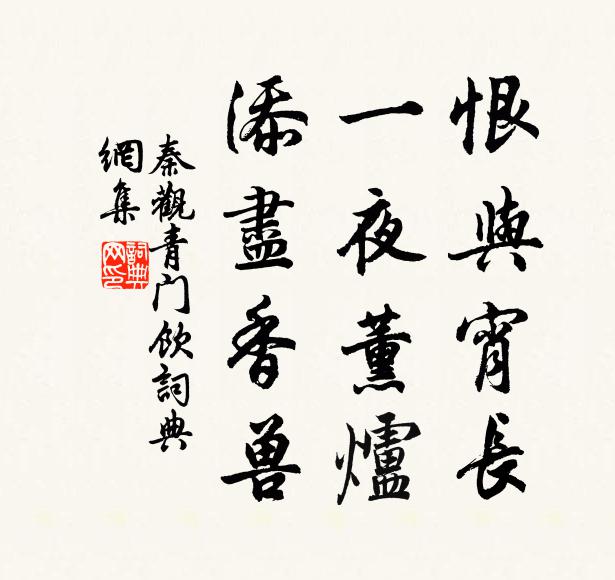 恨與宵長
一夜薰爐
添盡香兽
秦觀青门飲詞典
網集
詞典
网印